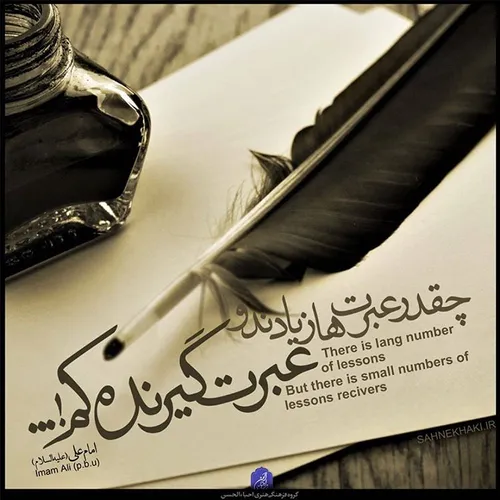 چقدر عبرت ها زیادند و
عبرت گیرنده کم!...
There is lang number
of lessons
But there is small numbers of
lessons recivers
امام علی (علیه السلام)
Imam Ali (p.b.u)
SAHNEKHAKI.IR
گروه فرهنگی هنری احیاءالحسن